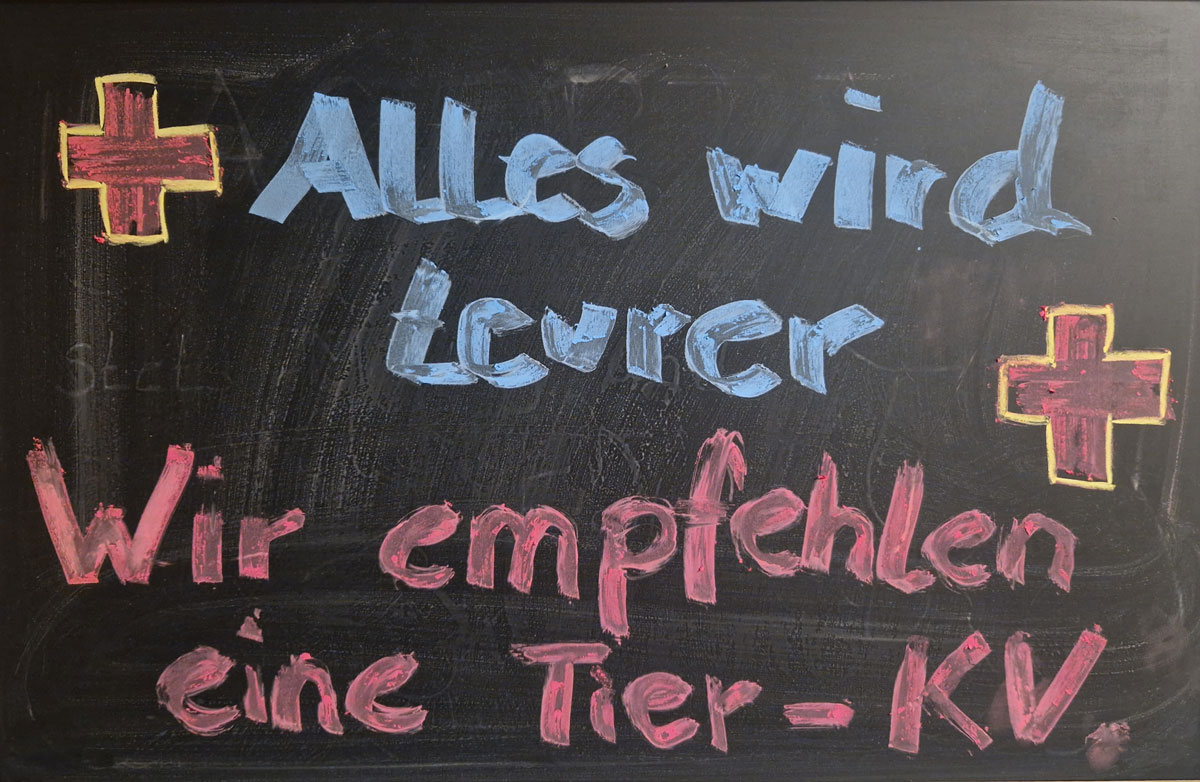 Alles wird
teurer
Wir empfehlen
eine Tier-KV.